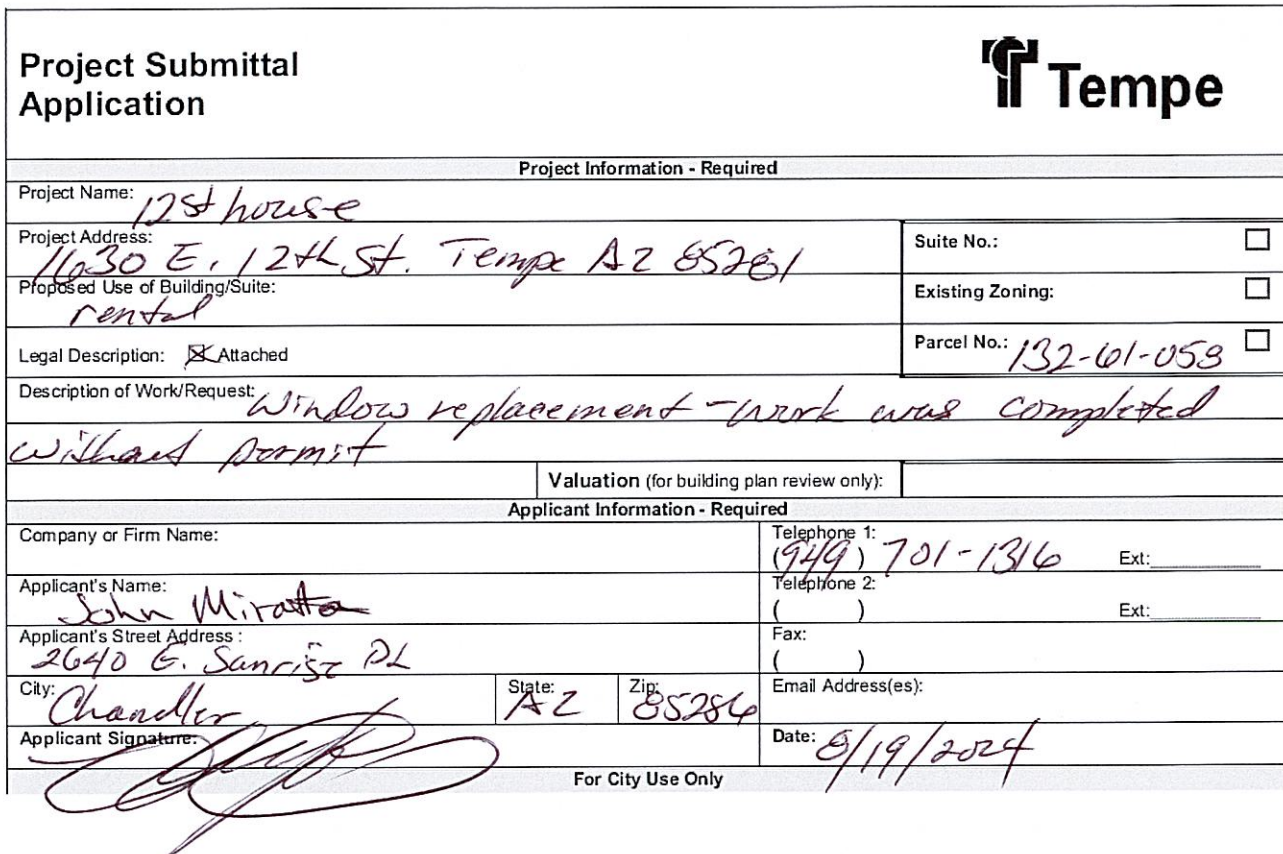 Project Submittal
Application
Tempe
Project Information - Required
Project Name: 12st house
Project Address: 1630 E. 12th St. Tempe AZ 85281
Suite No.:
Proposed Use of Building/Suite: rental
Existing Zoning:
Legal Description: Attached
Parcel No.: 132-61-058
Description of Work/Request: Window replacement - work was completed
without permit
Valuation (for building plan review only):
Applicant Information - Required
Company or Firm Name:
Telephone 1: (949) 701-1316 Ext:
Applicant's Name: John
Telephone 2: ( ) Ext:
Applicant's Street Address : 2640 E. Sunrise PL
Fax: ( )
City: Chandler State: AZ Zip: 85286
Email Address(es):
Applicant Signature:
Date: 8/19/2024
For City Use Only